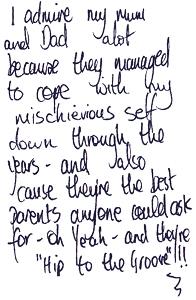 I admire my Mum
and Dad alot
because they managed
to cope with my
mischievious self
down through the
years - and also
'cause theyre the best
parents anyone could ask
for - oh yeah - and they're
"Hip to the Groove"!!!